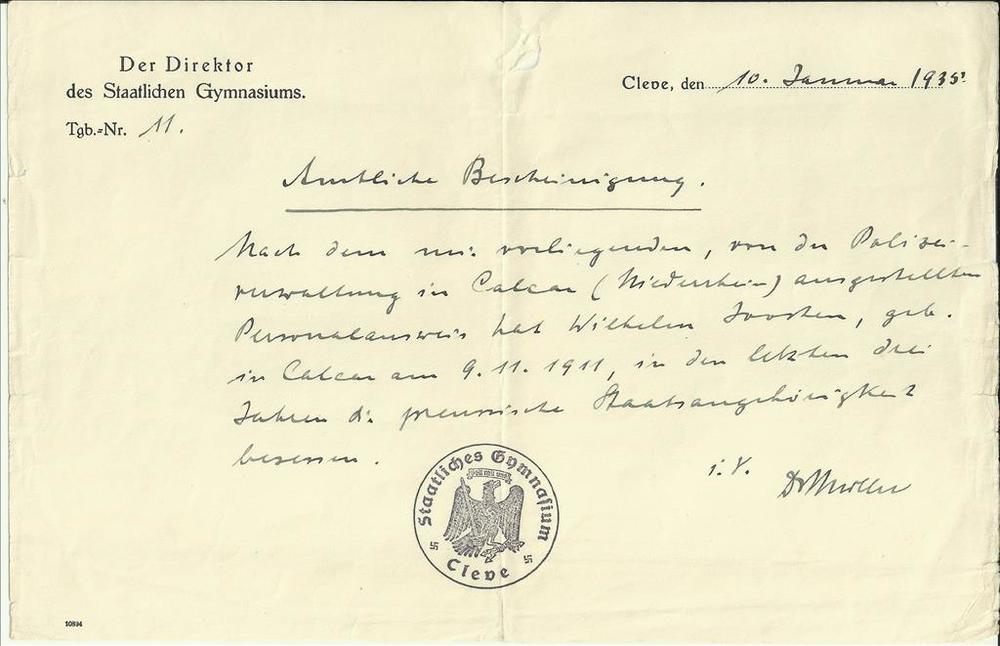 Der Direktor
des Staatlichen Gymnasiums.
Tgb.=Nr. 11.
Cleve, den 10. Januar 1935.
Amtliche Bescheinigung.
Nach dem mir vorliegenden, von der Polizei-
verwaltung in Calcar (Niederrhein) ausgestellten
Personalausweis hat Wilhelm Joosten, geb.
in Calcar am 9.11.1911, in den letzten drei
Jahren die preussische Staatsangehörigkeit
besessen.
i. V.
Staatliches Gymnasium
Cleve
10894